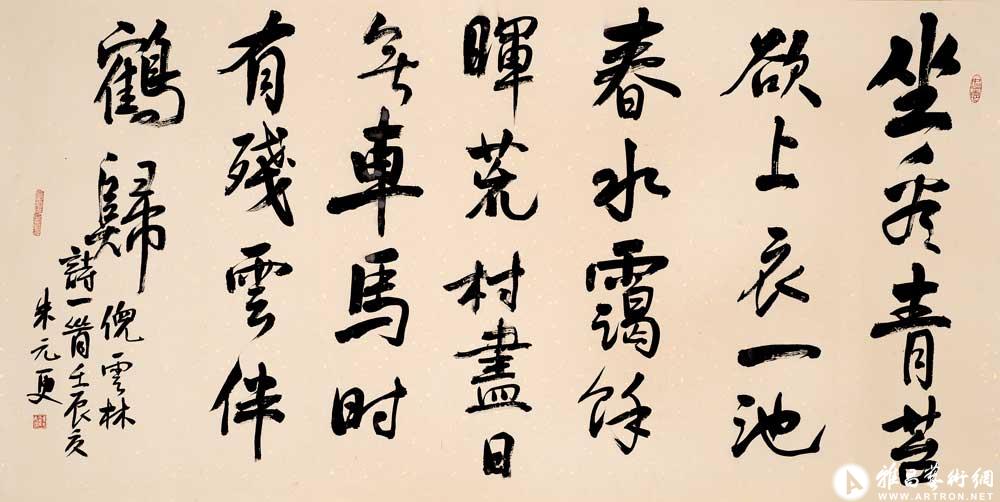 坐看青苔
欲上衣一池
春水靄餘
暉荒村盡日
無車馬时
有殘雲伴
鶴歸
倪雲林
詩一首壬辰夏
朱元更
雅昌藝術網
WWW.ARTRON.NET